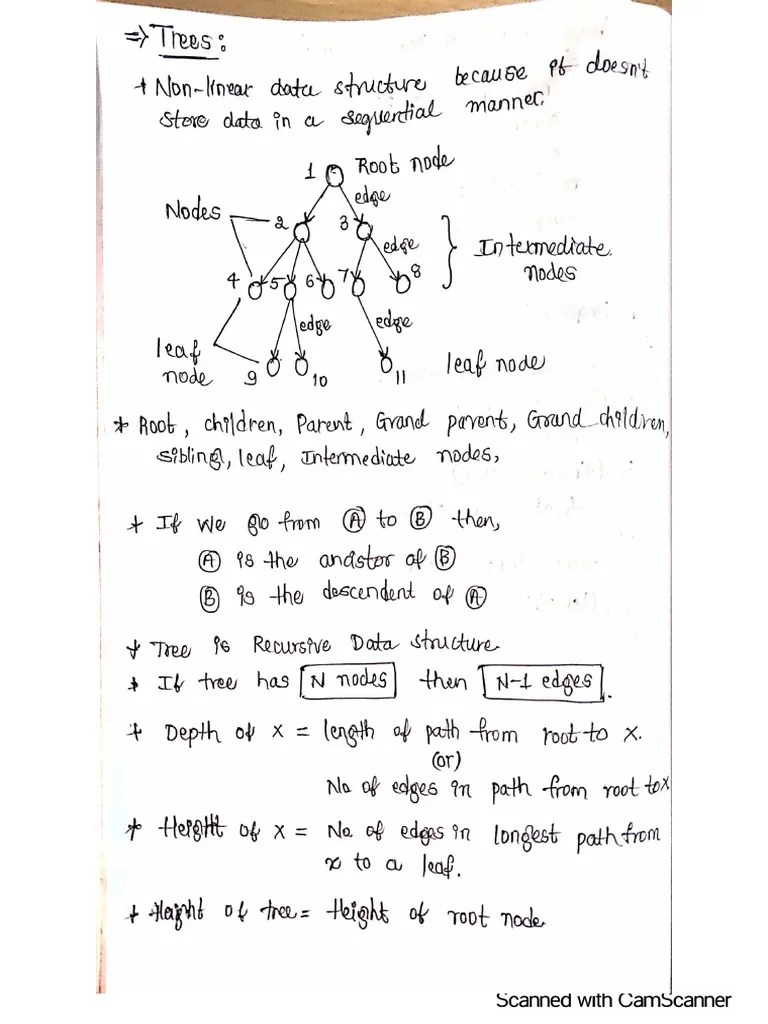 ⇒ Trees:
* Non-linear data structure because it doesn't
store data in a sequential manner.
1 Root node
edge
Nodes
2 3
edge
Intermediate
nodes
4 5 6 7 8
edge edge
leaf
node
9 10 11 leaf node
* Root, children, Parent, Grand parent, Grand children,
sibling, leaf, Intermediate nodes,
* If we go from A to B then,
A is the andstor of B
B is the descendent of A
* Tree is Recursive Data structure.
* If tree has N nodes then N-1 edges.
* Depth of x = length of path from root to x.
(or)
No of edges in path from root to x
* Height of x = No. of edges in longest path from
x to a leaf.
* Height of tree = Height of root node
Scanned with CamScanner